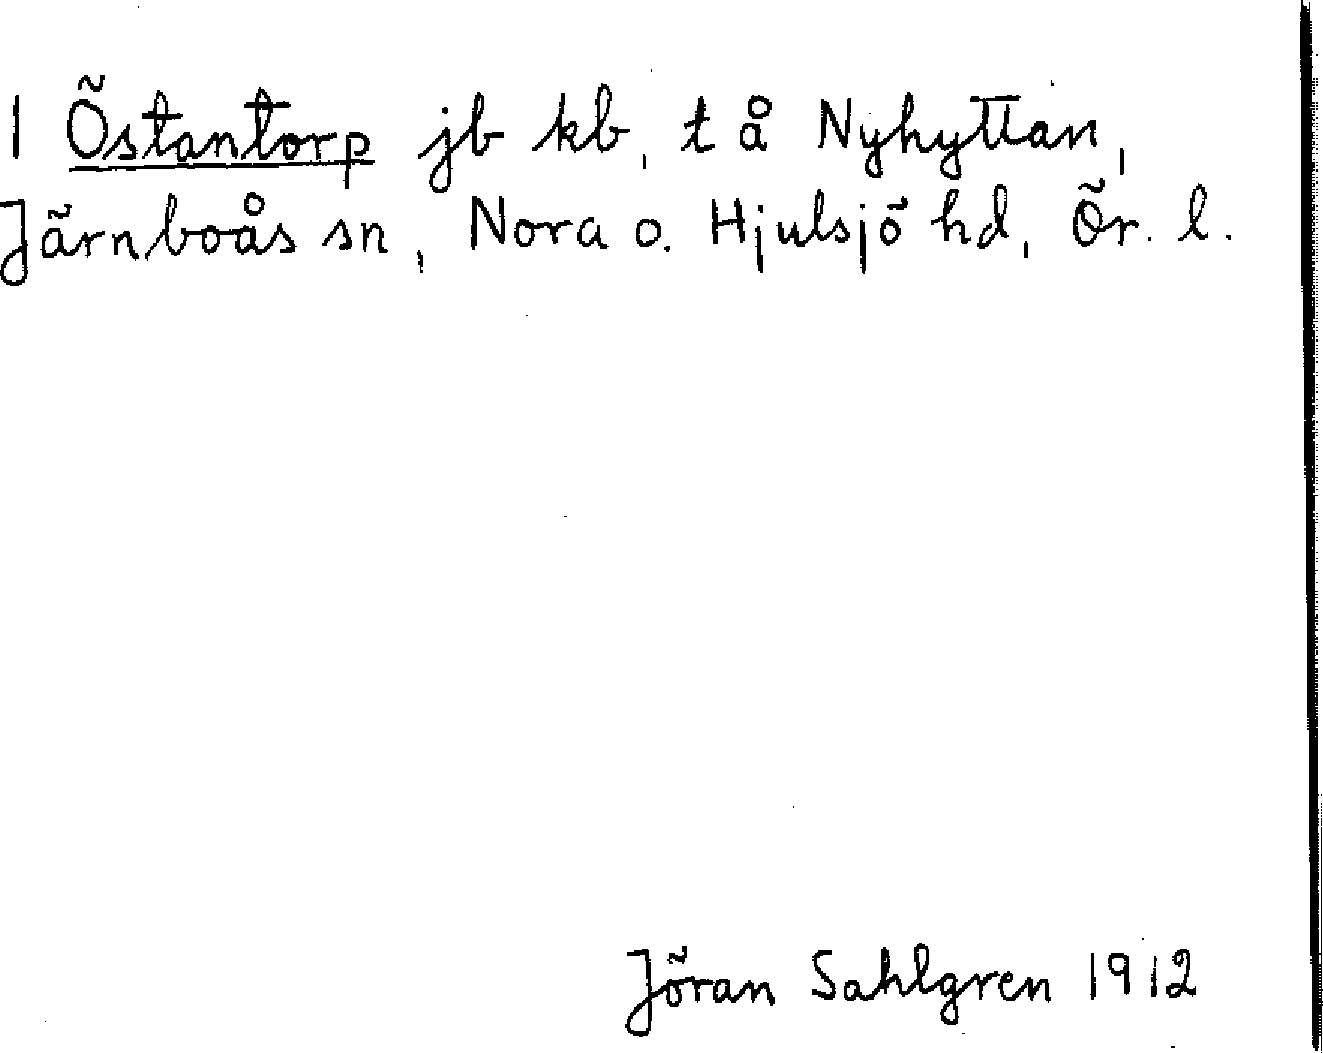 1 Östantorp jb kb, t å Nyhyttan,
Järnboås sn, Nora o. Hjulsjö hd, Ör. l.
Jöran Sahlgren 1912